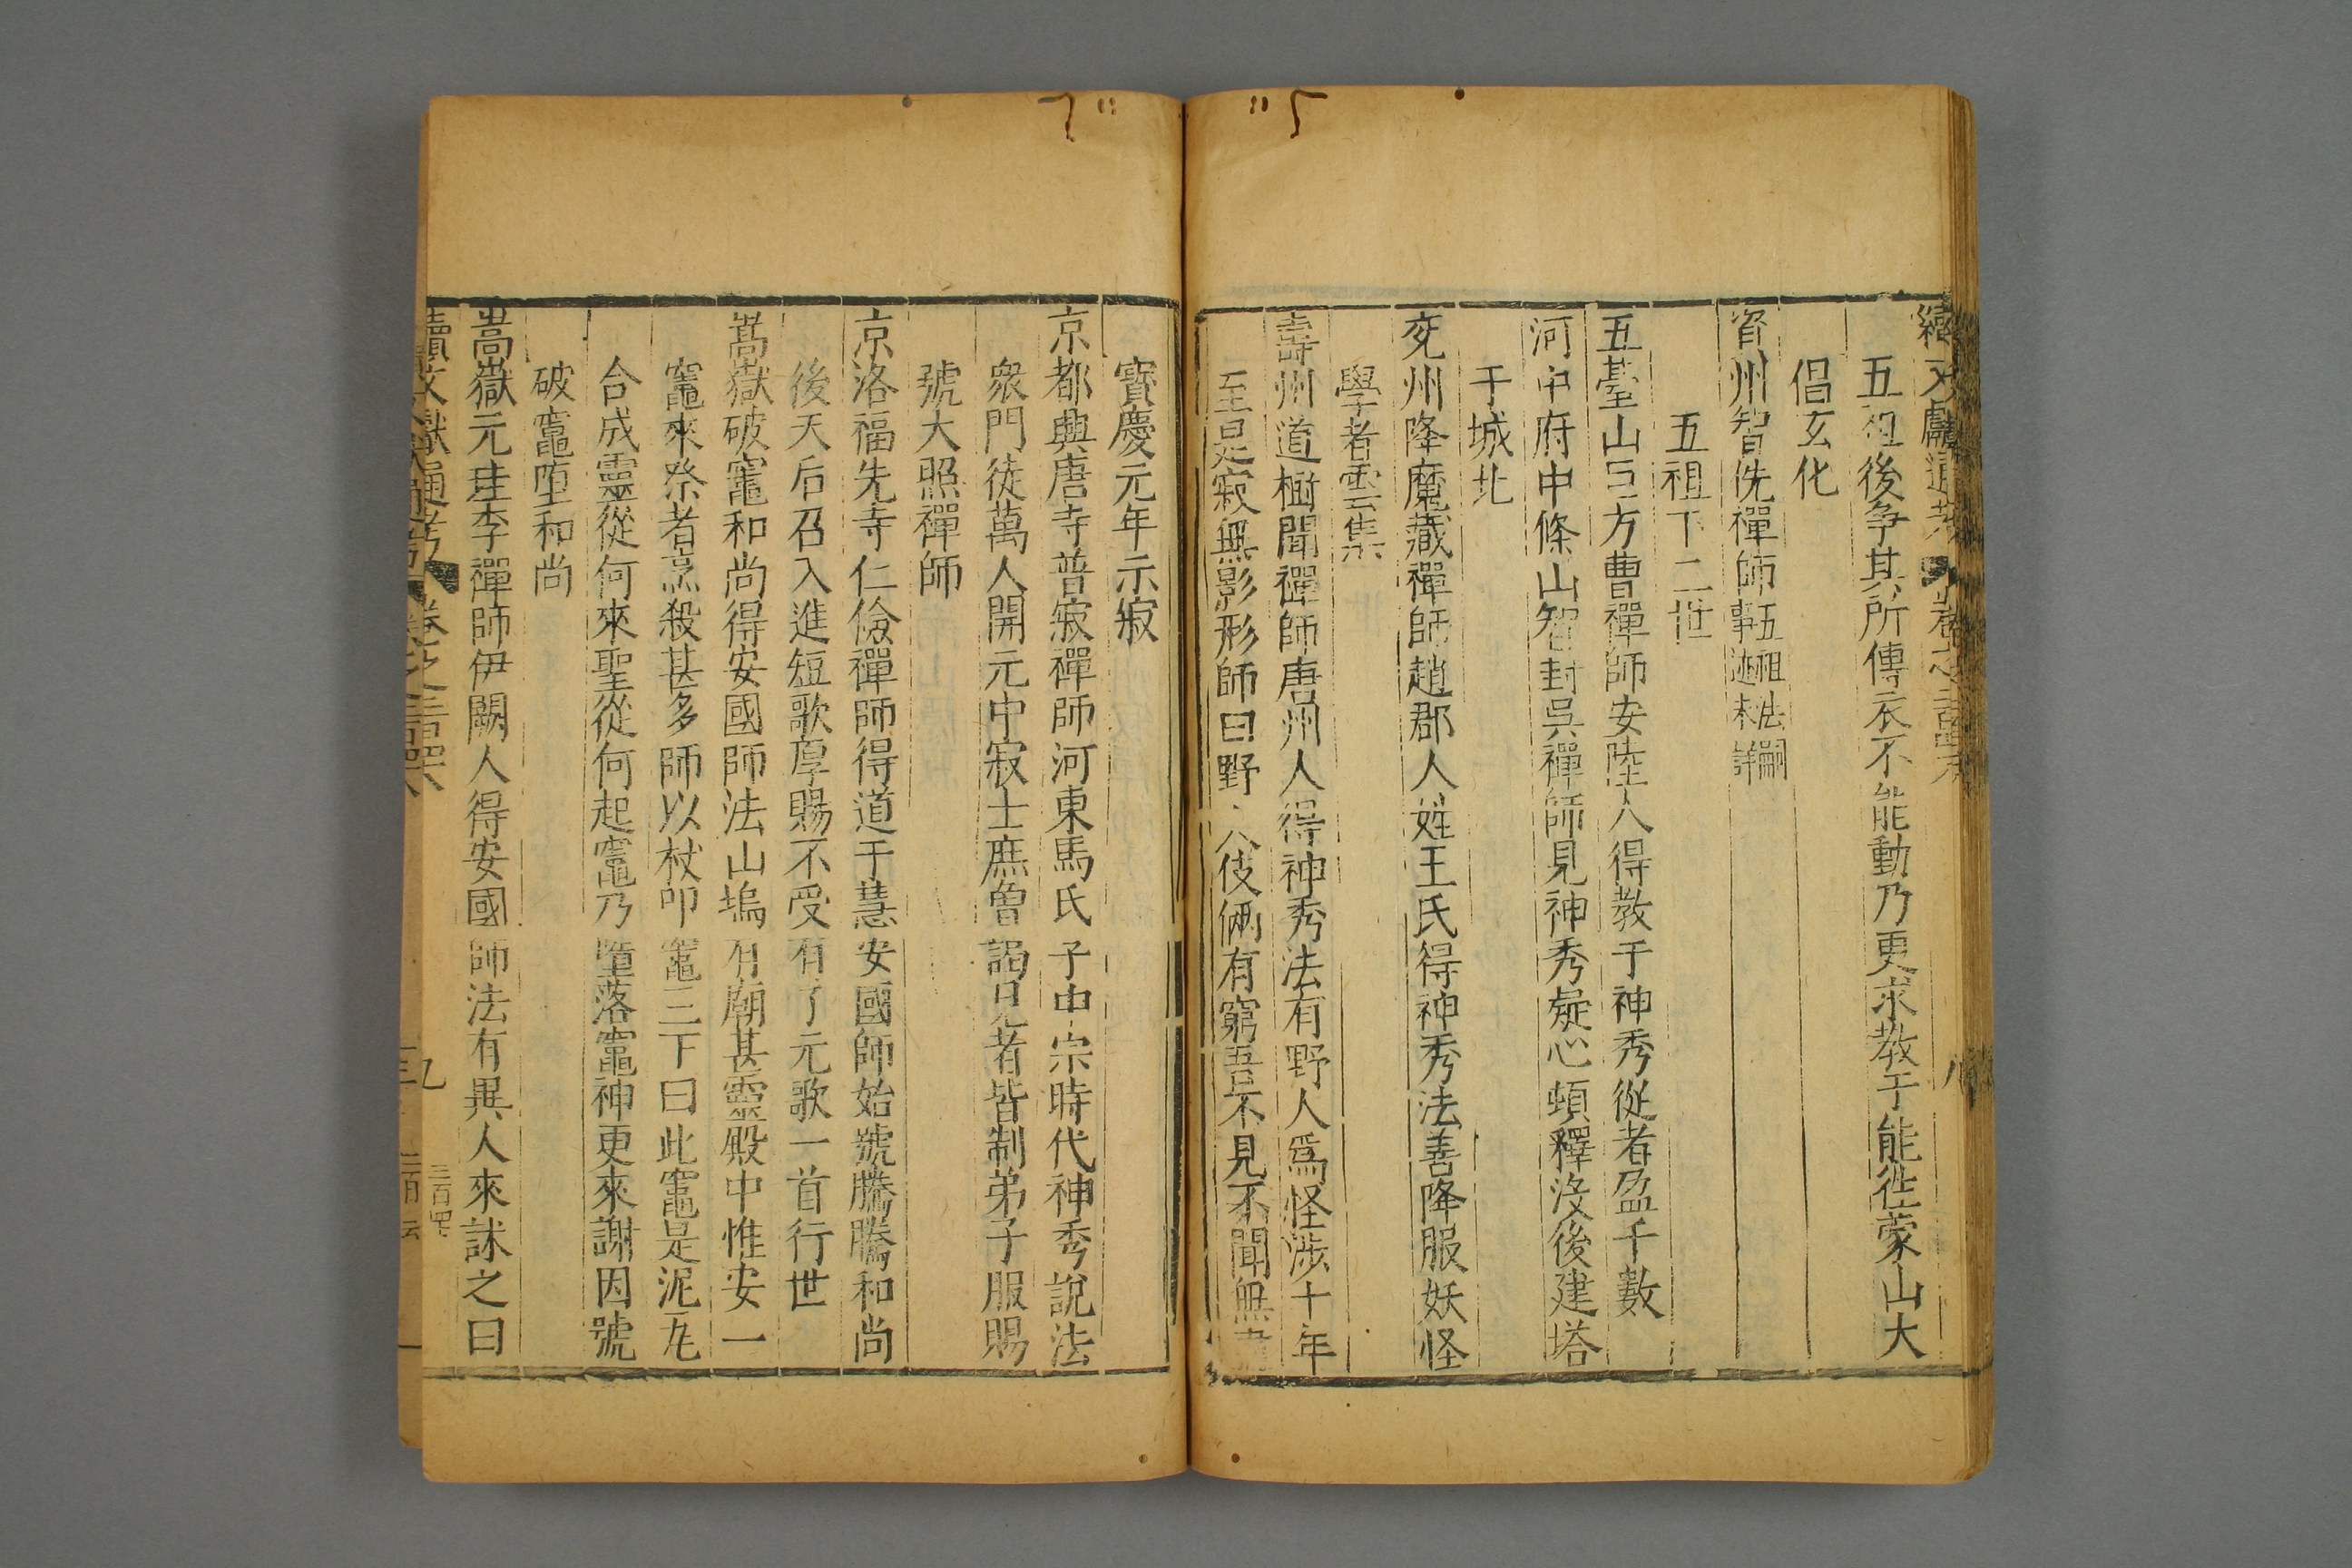 續文獻通考 卷之二百四十八 八
五祖後爭其所傳衣不能動乃更求教于能徃蒙山大
倡玄化
資州智侁禪師五祖法嗣事迹未詳
五祖下二世
五臺山巨方曹禪師安陸人得教于神秀從者盈千數
河中府中條山智封吳禪師見神秀疑心頓釋没後建塔
于城北
兗州降魔藏禪師趙郡人姓王氏得神秀法善降服妖怪
學者雲集
壽州道樹聞禪師唐州人得神秀法有野人爲怪涉十年
至是寂無影形師曰野人伎倆有窮吾不見不聞無
寶慶元年示寂
京都興唐寺普寂禪師河東馬氏子中宗時代神秀說法
衆門徒萬人開元中寂士庶曾謁見者皆制弟子服賜
號大照禪師
京洛福先寺仁儉禪師得道于慧安國師始號騰騰和尚
後天后召入進短歌厚賜不受有了元歌一首行世
嵩嶽破竈和尚得安國師法山塢有廟甚靈殿中惟安一
竈來祭者烹殺甚多師以杖叩竈三下曰此竈是泥瓦
合成靈從何來聖從何起竈乃墮落竈神更來謝因號
破竈堕和尚
嵩嶽元珪李禪師伊闕人得安國師法有異人來誅之曰
續文獻通考 卷之二百四十八 九